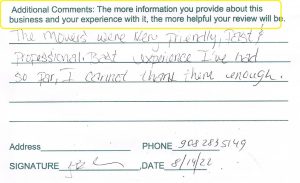 Additional Comments: The more information you provide about this
business and your experience with it, the more helpful your review will be.
The movers were very friendly, fast &
professional. Best experience I've had
so far, I cannot thank them enough.
Address
PHONE 908 283 5149
SIGNATURE
,DATE 8/19/22